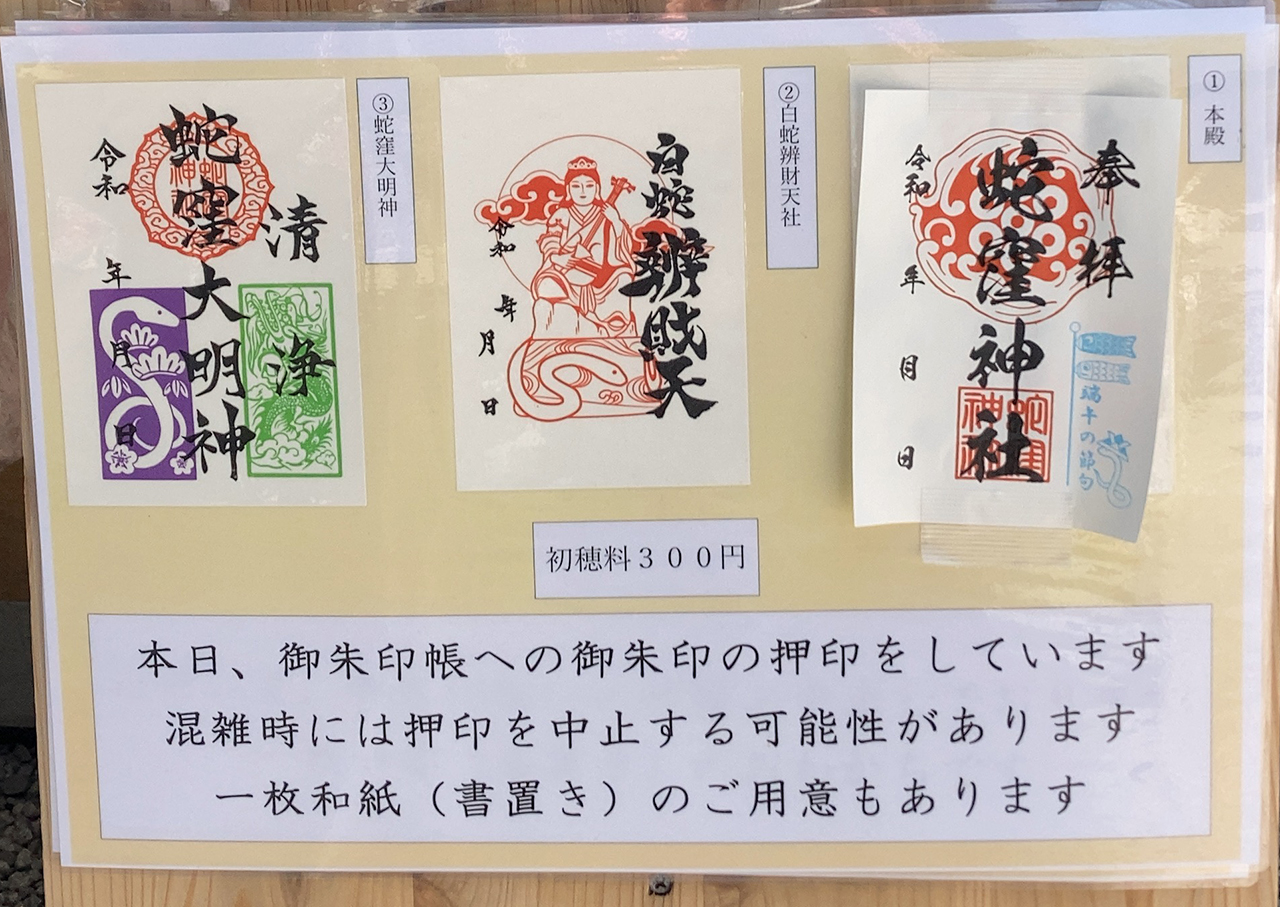 ① 本殿
奉拝
蛇窪神社
蛇窪神社
端午の節句
令和 年 月 日
② 白蛇辨財天社
白蛇辨財天
令和 年 月 日
③ 蛇窪大明神
清浄
蛇窪大明神
令和 年 月 日
初穂料３００円
本日、御朱印帳への御朱印の押印をしています
混雑時には押印を中止する可能性があります
一枚和紙（書置き）のご用意もあります